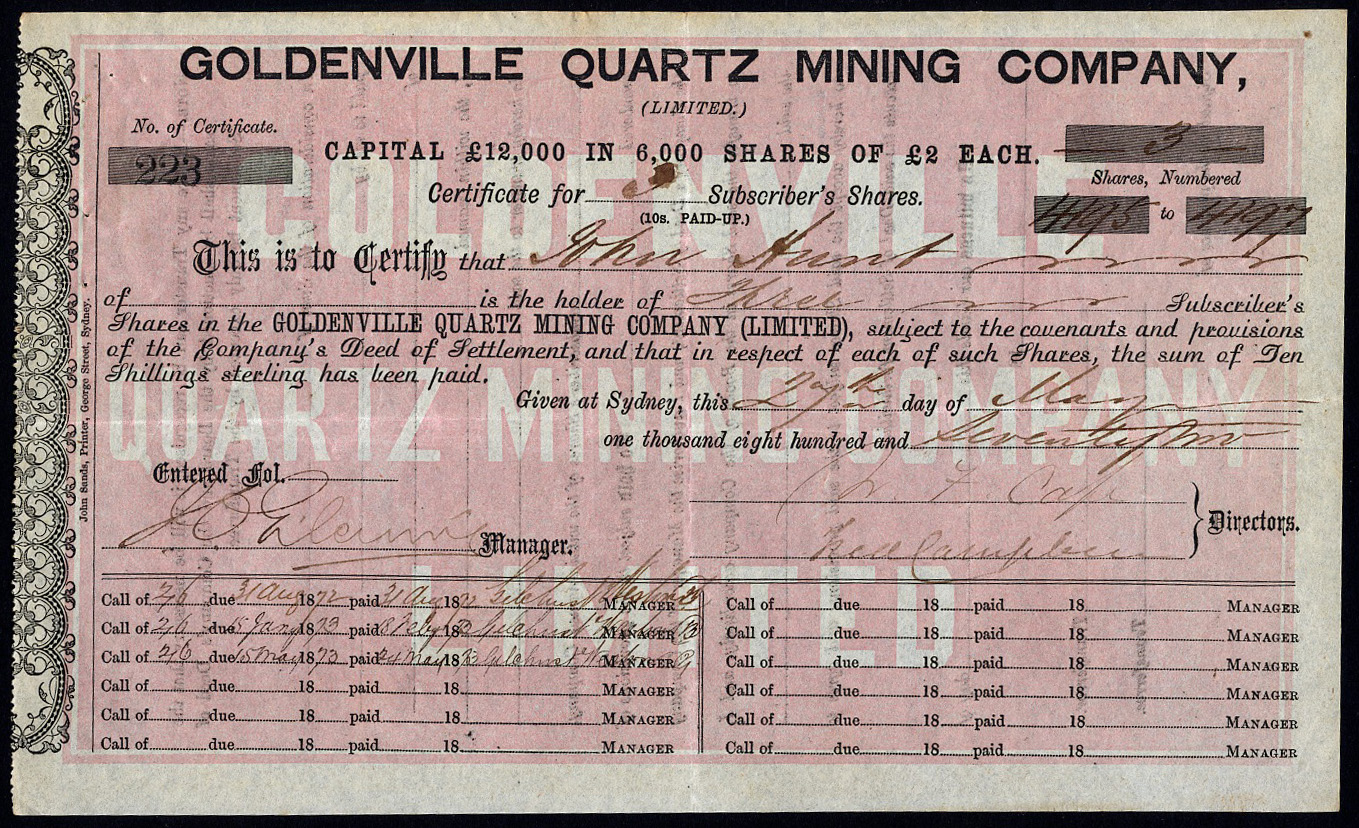 GOLDENVILLE QUARTZ MINING COMPANY,
(LIMITED.)
No. of Certificate.
223
CAPITAL £12,000 IN 6,000 SHARES OF £2 EACH.
3
Shares, Numbered
4495 to 4497
Certificate for 3 Subscriber's Shares.
(10s. PAID-UP.)
This is to Certify that John Hunt
of is the holder of Three Subscriber's
Shares in the GOLDENVILLE QUARTZ MINING COMPANY (LIMITED), subject to the covenants and provisions
of the Company's Deed of Settlement, and that in respect of each of such Shares, the sum of Ten
Shillings sterling has been paid.
Given at Sydney, this 27th day of May
one thousand eight hundred and Seventy two
Entered Fol.
Manager.
Directors.
Call of 2/6 due 31 Aug 1872 paid 31 Aug 1872 Gilchrist MANAGER
Call of 2/6 due 15 Jany 1873 paid Feby 1873 Gilchrist MANAGER
Call of 2/6 due 15 May 1873 paid 24 May 1873 Gilchrist MANAGER
Call of due 18 paid 18 MANAGER
Call of due 18 paid 18 MANAGER
Call of due 18 paid 18 MANAGER
Call of due 18 paid 18 MANAGER
Call of due 18 paid 18 MANAGER
Call of due 18 paid 18 MANAGER
Call of due 18 paid 18 MANAGER
Call of due 18 paid 18 MANAGER
Call of due 18 paid 18 MANAGER
John Sands, Printer, George Street, Sydney.
GOLDENVILLE
QUARTZ MINING COMPANY
LIMITED